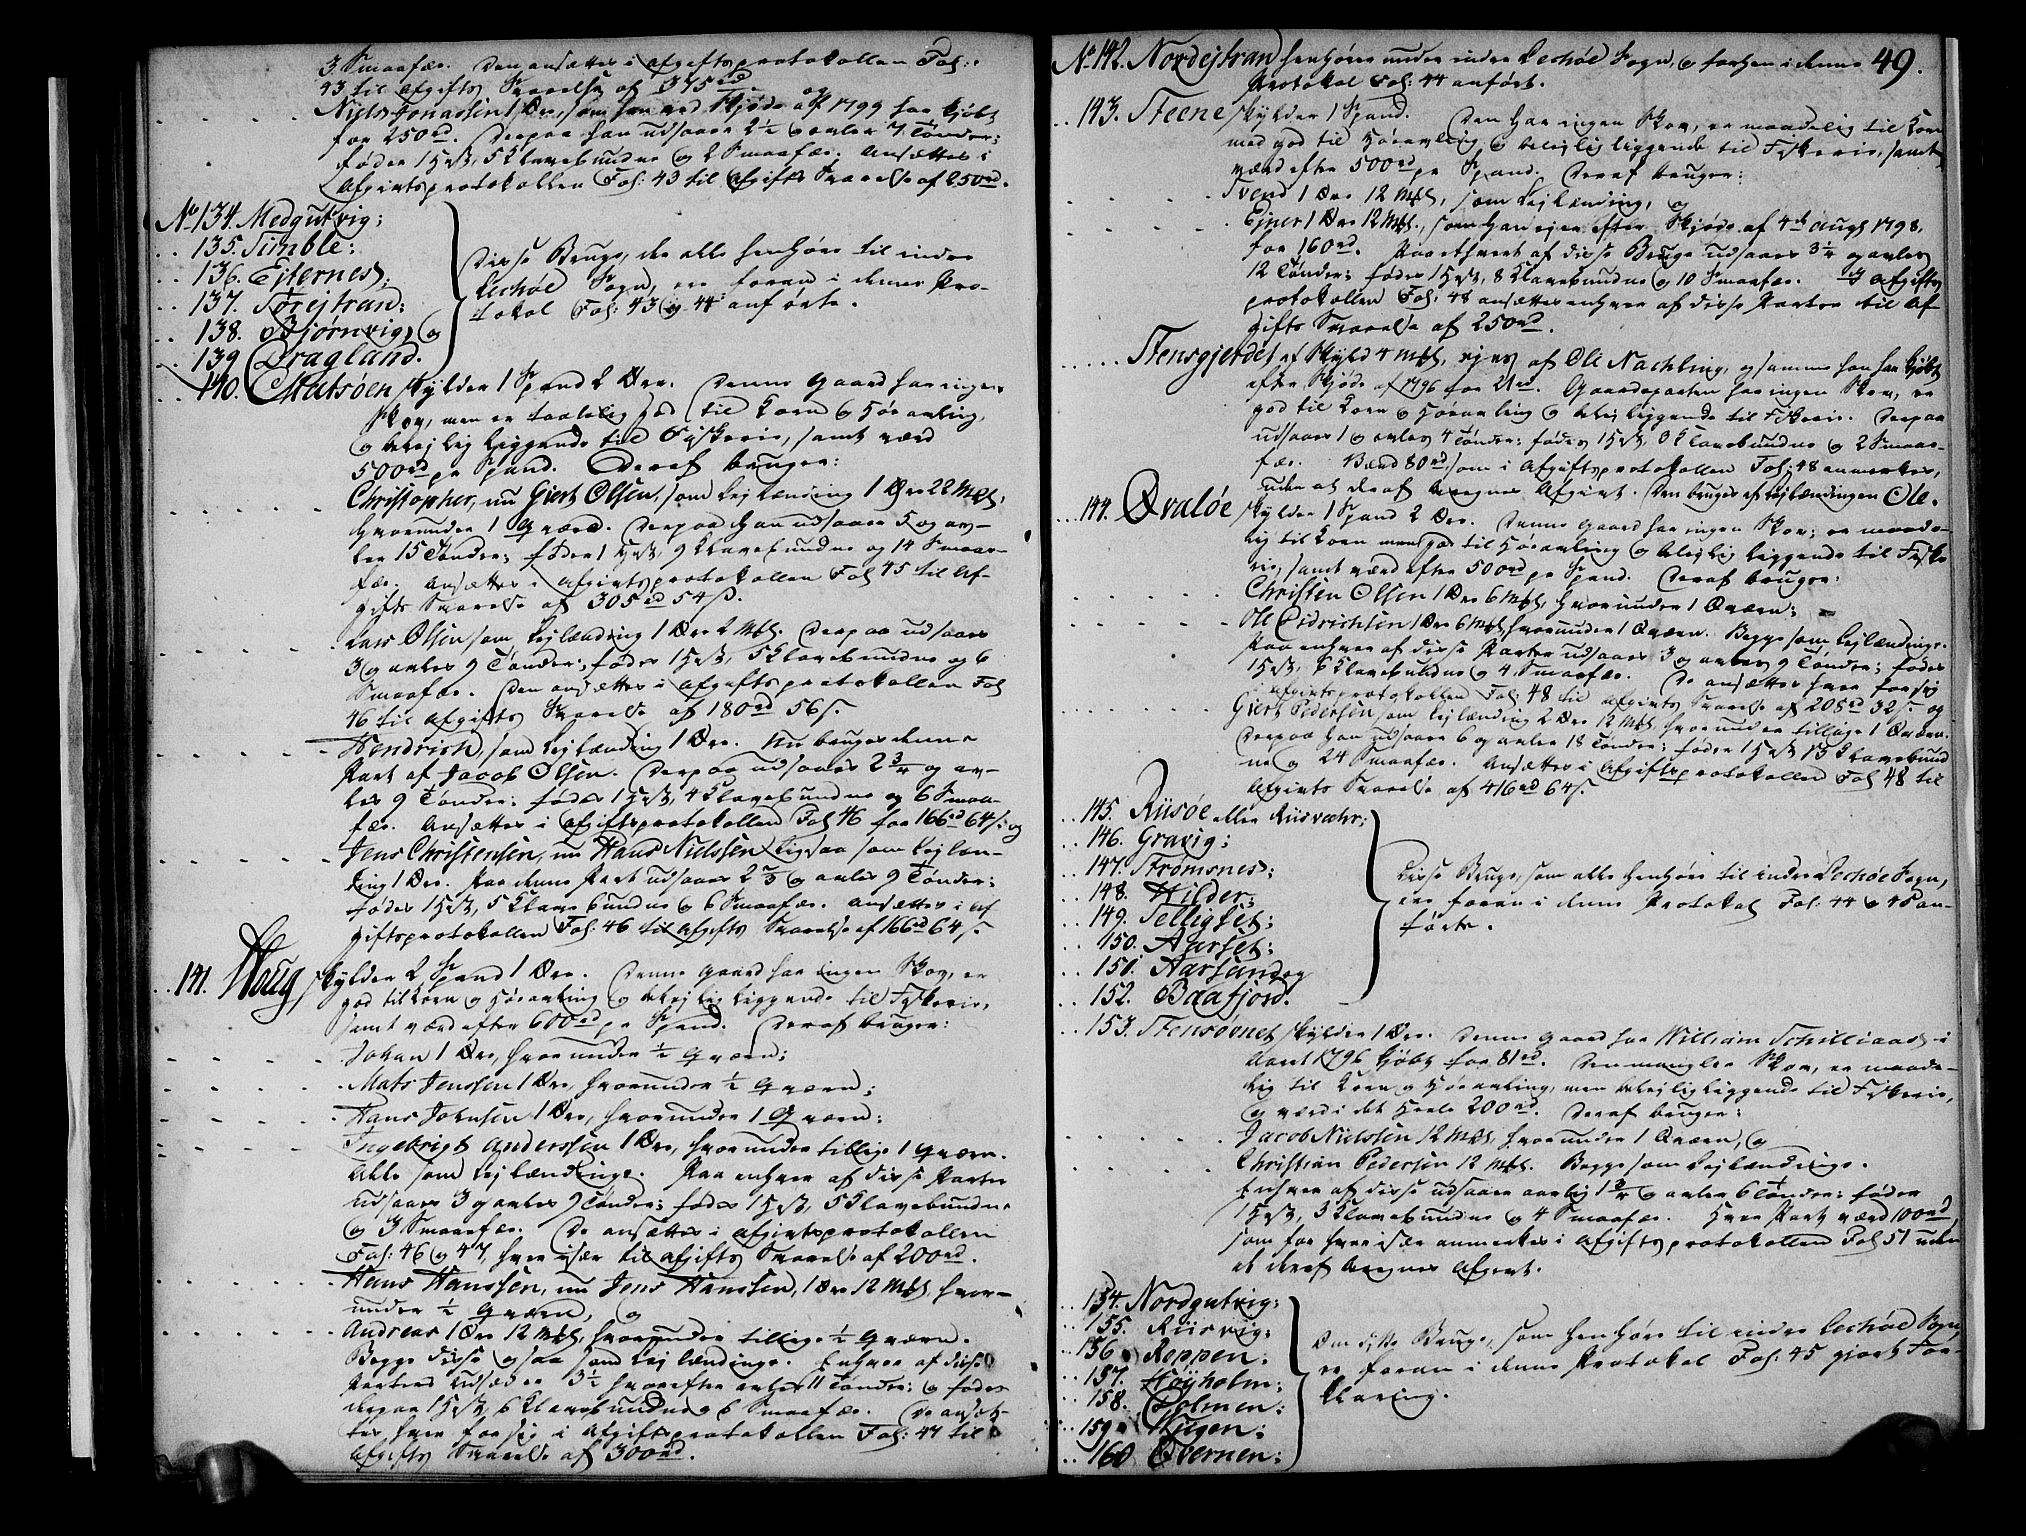 3 Smaafæ. Den ansættes i Afgiftsprotokollen Fol:
43 til Afgifts Svarelse af 375 rd og
Niels Jonassen 1 Øre, som han ved Skjøde af 1799 har kjøbt
for 250 rd. Derpaa han udsaaer 2½ og avler 7 Tønder;
føder 1 Hest, 5 Klavebundne og 2 Smaafæ. Ansættes i
Afgivtsprotokollen Fol: 43 til Afgifts Svarelse af 250 rd.
No 134. Medgutvig;
135. Timble:
136. Ejternes;
137. Sørejtran;
138. Bjørnvig, og
139 Dragland.
Disse Bruge, der alle henhøre til indre
Lechøe Sogn, ere foran i denne Pro-
tokol Fol: 43 og 44 anførte.
140. Madsøen skylder 1 Spand 2 Øre. Denne Gaard har ingen
Skov, men er taalelig god til Korn og Høeavling,
og belejlig liggende til Fiskerie, samt værd
500 rd pr Spand. Deraf bruger:
Christopher, nu Giert Olsen, som Lejlænding 1 Øre 22 Mkl,
hvorunder 1 Qværn. Derpaa han udsaaer 5 og av-
ler 15 Tønder; føder 1 Hest, 9 Klavebundne og 14 Smaa-
fæe. Ansættes i Afgivtsprotokollen Fol 45 til Af-
gifts Svarelse af 305 rd 54 s.
Lars Olsen som Lejlænding 1 Øre 2 Mkl. Derpaa udsaaes
3 og avles 9 Tønder; fødes 1 Hest, 5 Klavebundne og 6
Smaafæe. Den ansættes i Afgiftsprotokollen Fol
46 til Afgifts Svarelse af 180 rd 56 s.
Hendrich, som Lejlænding 1 Øre. Nu bruges denne
Part af Jacob Olsen. Derpaa udsaaes 2¾ og av-
les 9 Tønder; fødes 1 Hest, 4 Klavebundne og 6 Smaa-
fæe. Ansættes i Afgiftsprotokollen Fol 46 for 166 rd 64 s; og
Jens Christensen, nu Hans Nielssen ligesaa som Lejlæn-
ding 1 Øre. Paa denne Part udsaaes 2⅔ og avles 9 Tønder;
fødes 1 Hest, 5 Klavebundne og 6 Smaafæe. Ansættes i Af
giftsprotokollen Fol: 46 til Afgifts Svarelse af 166 rd 64 s.
141. Houg, skylder 2 Spand 1 Øre. Denne Gaard har ingen Skov, er
god til Korn og Høeavling og belejlig liggende til Fiskerie,
samt værd efter 600 rd pr Spand. Deraf bruger:
Johan 1 Øre, hvorunder ½ Qværn;
Mats Jenssen 1 Øre, hvorunder ½ Qværn;
Hans Johnsen 1 Øre, hvorunder 1 Qværn:
Ingebrigt Anderssen 1 Øre, hvorunder tillige 1 Qværn.
Alle som Lejlændinge. Paa enhver af disse Parter
udsaaes 3 og avles 9 Tønder; fødes 1 Hest, 5 Klavebundne
og 3 Smaafæe. De ansættes i Afgivtsprotokollen
Fol: 46 og 47, hver især til Afgifts Svarelse af 200 rd.
Hans Hanssen, nu Jens Hanssen, 1 Øre 12 Mkl hvor-
under ½ Qværn, og
Andreas 1 Øre 12 Mkl, hvorunder tillige ½ Qværn.
Begge disse ogsaa som Lejlændinge. Enhver af disse
Parters Udsæd er 3½ hvorefter avles 11 Tønder; og fødes
derpaa 1 Hest, 6 Klavebundne og 6 Smaafæe. De ansæt-
tes, hver for sig i Afgiftsprotokollen Fol: 47 til
Afgifts Svarelse af 300 rd.
No 142. Nordejtran henhører under indre Lechøe Sogn, og forhen i denne 49.
Protokol Fol: 44 anført.
143. Steene skylder 1 Spand. Den har ingen Skov, er maadelig til Korn
med god til Høeavling og belejlig liggende til Fiskerie, samt
værd efter 500 rd pr Spand. Deraf bruger:
Svend 1 Øre 12 Mkl, som Lejlænding, og
Ejner 1 Øre 12 Mkl, som han ejer efter Skjøde af 4de Augt 1798,
for 160 rd. Paa ethvert af disse Bruge udsaaes 3¼ og avles
12 Tønder; fødes 1 Hest, 8 Klavebundne og 10 Smaafæe. I Afgifts
protokollen Fol: 48 ansættes enhver af disse Parter til Af-
gifts Svarelse af 250 rd.
Stensgjerdet af Skyld 4 Mkl, ejes af Ole Nachling, og samme han har kjøbt
efter Skjøde af 1796 for 21 rd. Gaardsparten har ingen Skov, er
god til Korn og Høeavling og belejlig liggende til Fiskerie. Derpaa
udsaaes 1 og avles 4 Tønder; fødes 1 Hest, 3 Klavebundne og 2 Smaa-
fæe. Værd 80 rd, som i Afgiftsprotokollen Fol: 48 anmerkes,
uden at deraf beregnes Afgivt. Den bruges af Lejlændingen Ole.
144. Qvaløe skylder 1 Spand 2 Øre. Denne Gaard har ingen Skov; er maade-
lig til Korn men god til Høeavling og belejlig liggende til Fiske
rie, samt værd efter 500 rd pr Spand. Deraf bruger:
Christen Olsen 1 Øre 6 Mkl, hvorunder 1 Qværn;
Ole Eidrichsen 1 Øre 6 Mkl, hvorunder 1 Qværn. Begge som Lejlændinge.
Paa enhver af disse Parter udsaaes 3 og avles 9 Tønder; fødes
1 Hest, 6 Klavebundne og 4 Smaafæe. De ansættes hver for sig
i Afgivtsprotokollen Fol: 48 til Afgivts Svarelse af 208 rd 32 s. og
Giert Pedersen som Lejlænding 2 Øre 12 Mkl hvorunder tillige 1 Qværn.
Derpaa han udsaaer 6 og avler 18 Tønder; føder 1 Hest 13 Klavebund
ne og 24 Smaafæe. Ansættes i Afgiftsprotokollen Fol 48 til
Afgivts Svarelse af 416 rd 64 s.
145. Riisøe eller Riisvær;
146. Gravig;
147. Strømsnes;
148. Hilder;
149. Selligset;
150. Aarset;
151. Aarsand og
152. Baafjord.
Disse Bruge, som alle henhøre til indre Lechøe Sogn,
ere foran i denne Protokol Fol: 44 og 45 an-
førte.
153. Stensøvnet skylder 1 Øre. Denne Gaard har William Schilliaas i
Aaret 1796 kjøbt for 81 rd. Den mangler Skov, er maade-
lig til Korn og Høeavling, men belejlig liggende til Fiskerie,
og værd i det heele 200 rd. Deraf bruger:
Jacob Nielssen 12 Mkl, hvorunder 1 Qværn, og
Christian Pedersen 12 Mkl. Begge som Lejlændinge.
Enhver af disse udsaaer aarlig 1¾ og avler 6 Tønder; føder
1 Hest, 3 Klavebundne og 4 Smaafæe. Hver Part værd 100 rd,
som for hver især anmerkes i Afgiftsprotokollen Fol 51 uden
at deraf beregnes Afgivt.
154. Nordgutvig;
155. Riisvig;
156. Reppen;
157. Høyholm;
158. Holmen;
159. Hugen;
160 Øvernen;
Om disse Bruge, som henhøre til indre Lechøe Sogn,
er foran i denne Protokol Fol: 45 gjort For-
klaring.